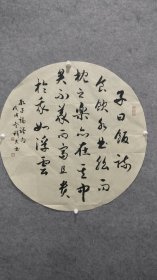 子曰飯疏
食飲水曲肱而
枕之樂亦在其中
矣不義而富且貴
於我如浮雲
孔子論語句